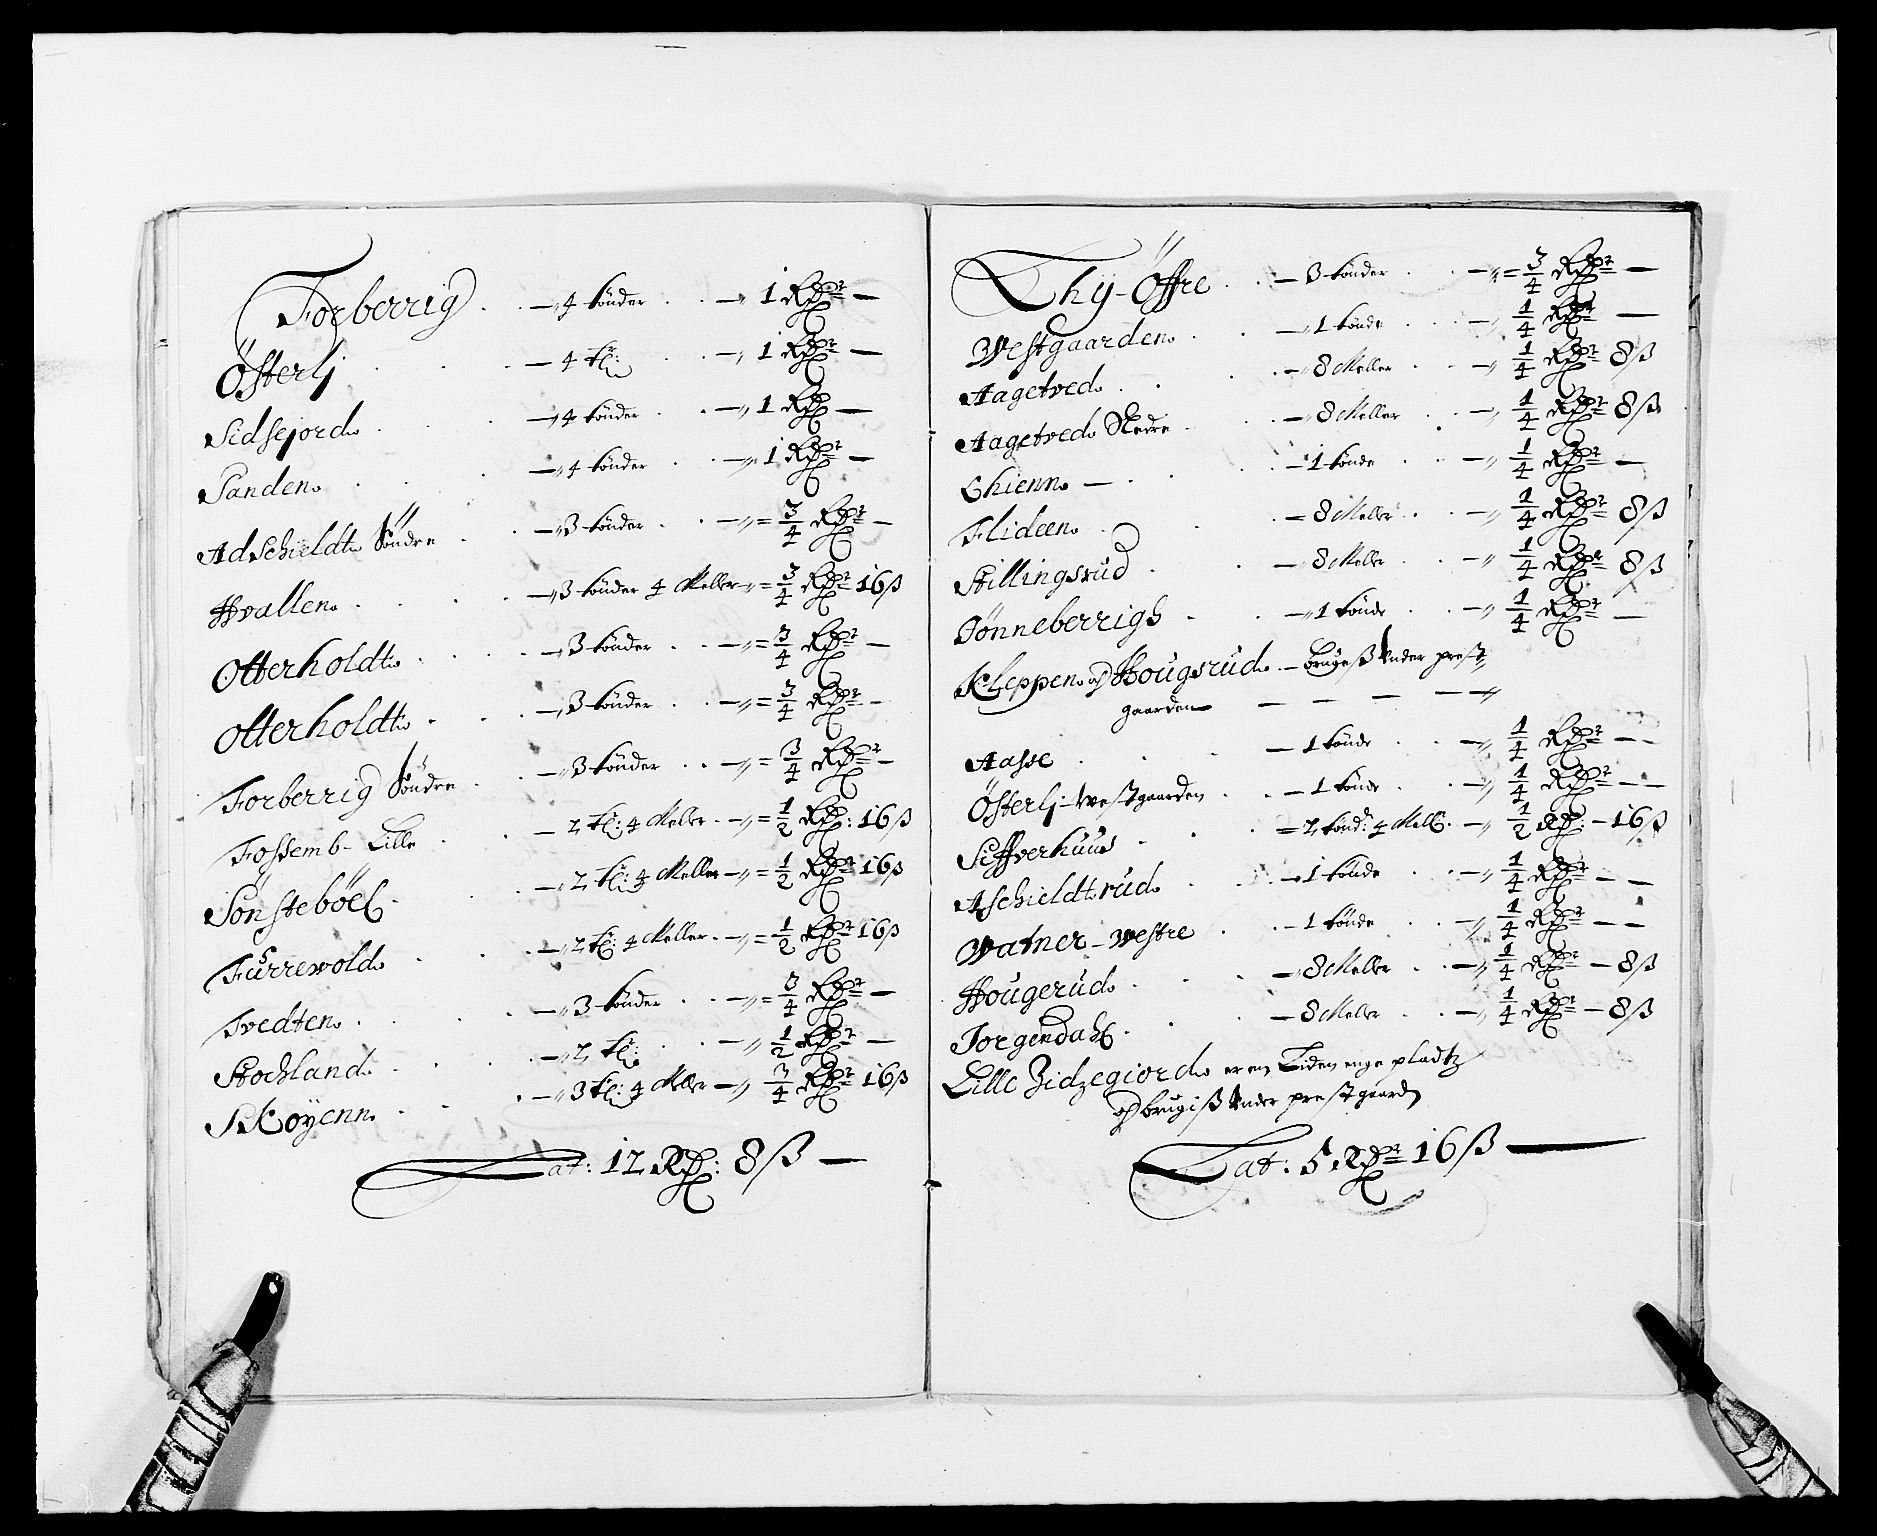 Forberrig . . — 4 tönder . . — 1 Rdr —
Österlj . . — 4 tr: . . — 1 Rdr —
Sidsejord . . — 4 tönder . . — 1 Rd —
Sanden . . — 4 tönder . . — 1 Rdr —
Adschieldt Söndre . — 3 tönder . . — = 3/4 Rdr —
Hvallen . . — 3 tönder 4 Meller = 3/4 Rdr 16 ß
Otterholdt . . — 3 tönder . . — = 3/4 Rdr —
Otterholdt . . — 3 tönder . . — = 3/4 Rdr —
Forberrig Söndre . — 3 tönder . . — = 3/4 Rdr —
Fossemb- Lille . — 2 tr: 4 Meller . — = 1/2 Rd: 16 ß
Sönsteböel . — 2 tr: 4 Meller — = 1/2 Rdr 16 ß
Fürrevold . . — 2 tr: 4 Meller . — = 1/2 Rdr 16 ß
Tvedten . . — 3 tönder . . — = 3/4 Rdr —
Stochland . . — 2 tr: . . — 1/2 Rdr —
Skoyenn . . — 3 tr: 4 Meller — 3/4 Rdr 16 ß
Lat: 12 Rd: 8 ß —
Thy-Öffre . . — 3 tönder . . — = 3/4 Rdr —
Westgaarden . . — 1 tönde . . — 1/4 Rdr —
Aagetved . . — 8 Meller . . — 1/4 Rdr 8 ß
Aagetved Nedre . — 8 Meller . . — 1/4 Rdr 8 ß
Chienn — . . — 1 tönde . . — 1/4 Rdr —
Flideen . . = 8 Meller . . — 1/4 Rdr 8 ß
Stillingsrüd . . — 8 Meller . . — 1/4 Rdr 8 ß
Dönneberrigh . . — 1 tönde . . — 1/4 Rdr —
Kleppen och Hougsrüd . — brugeß under prest
gaarden — — — — —
Aasse . . — 1 tönde . . — 1/4 Rdr — —
Österlj-westgaarden . . — 1 tönde . — 1/4 Rdr — —
Siffverhüüs . . = 2 tönd: 4 Mell: — 1/2 Rd: — 16 ß
Aschieldtrüd . . — 1 tönde . . — 1/4 Rdr — —
Watner-Westre . . — 1 tönde . . — 1/4 Rdr — —
Hougerüd . . — 8 Meller . . — 1/4 Rdr — 8 ß
Jorgendahl . . — 8 Meller . . — 1/4 Rdr — 8 ß
Lille Zidzegiord er en Liden enge pladtz
och brugiß under prestgaard
Lat: 5 Rdr 16 ß —